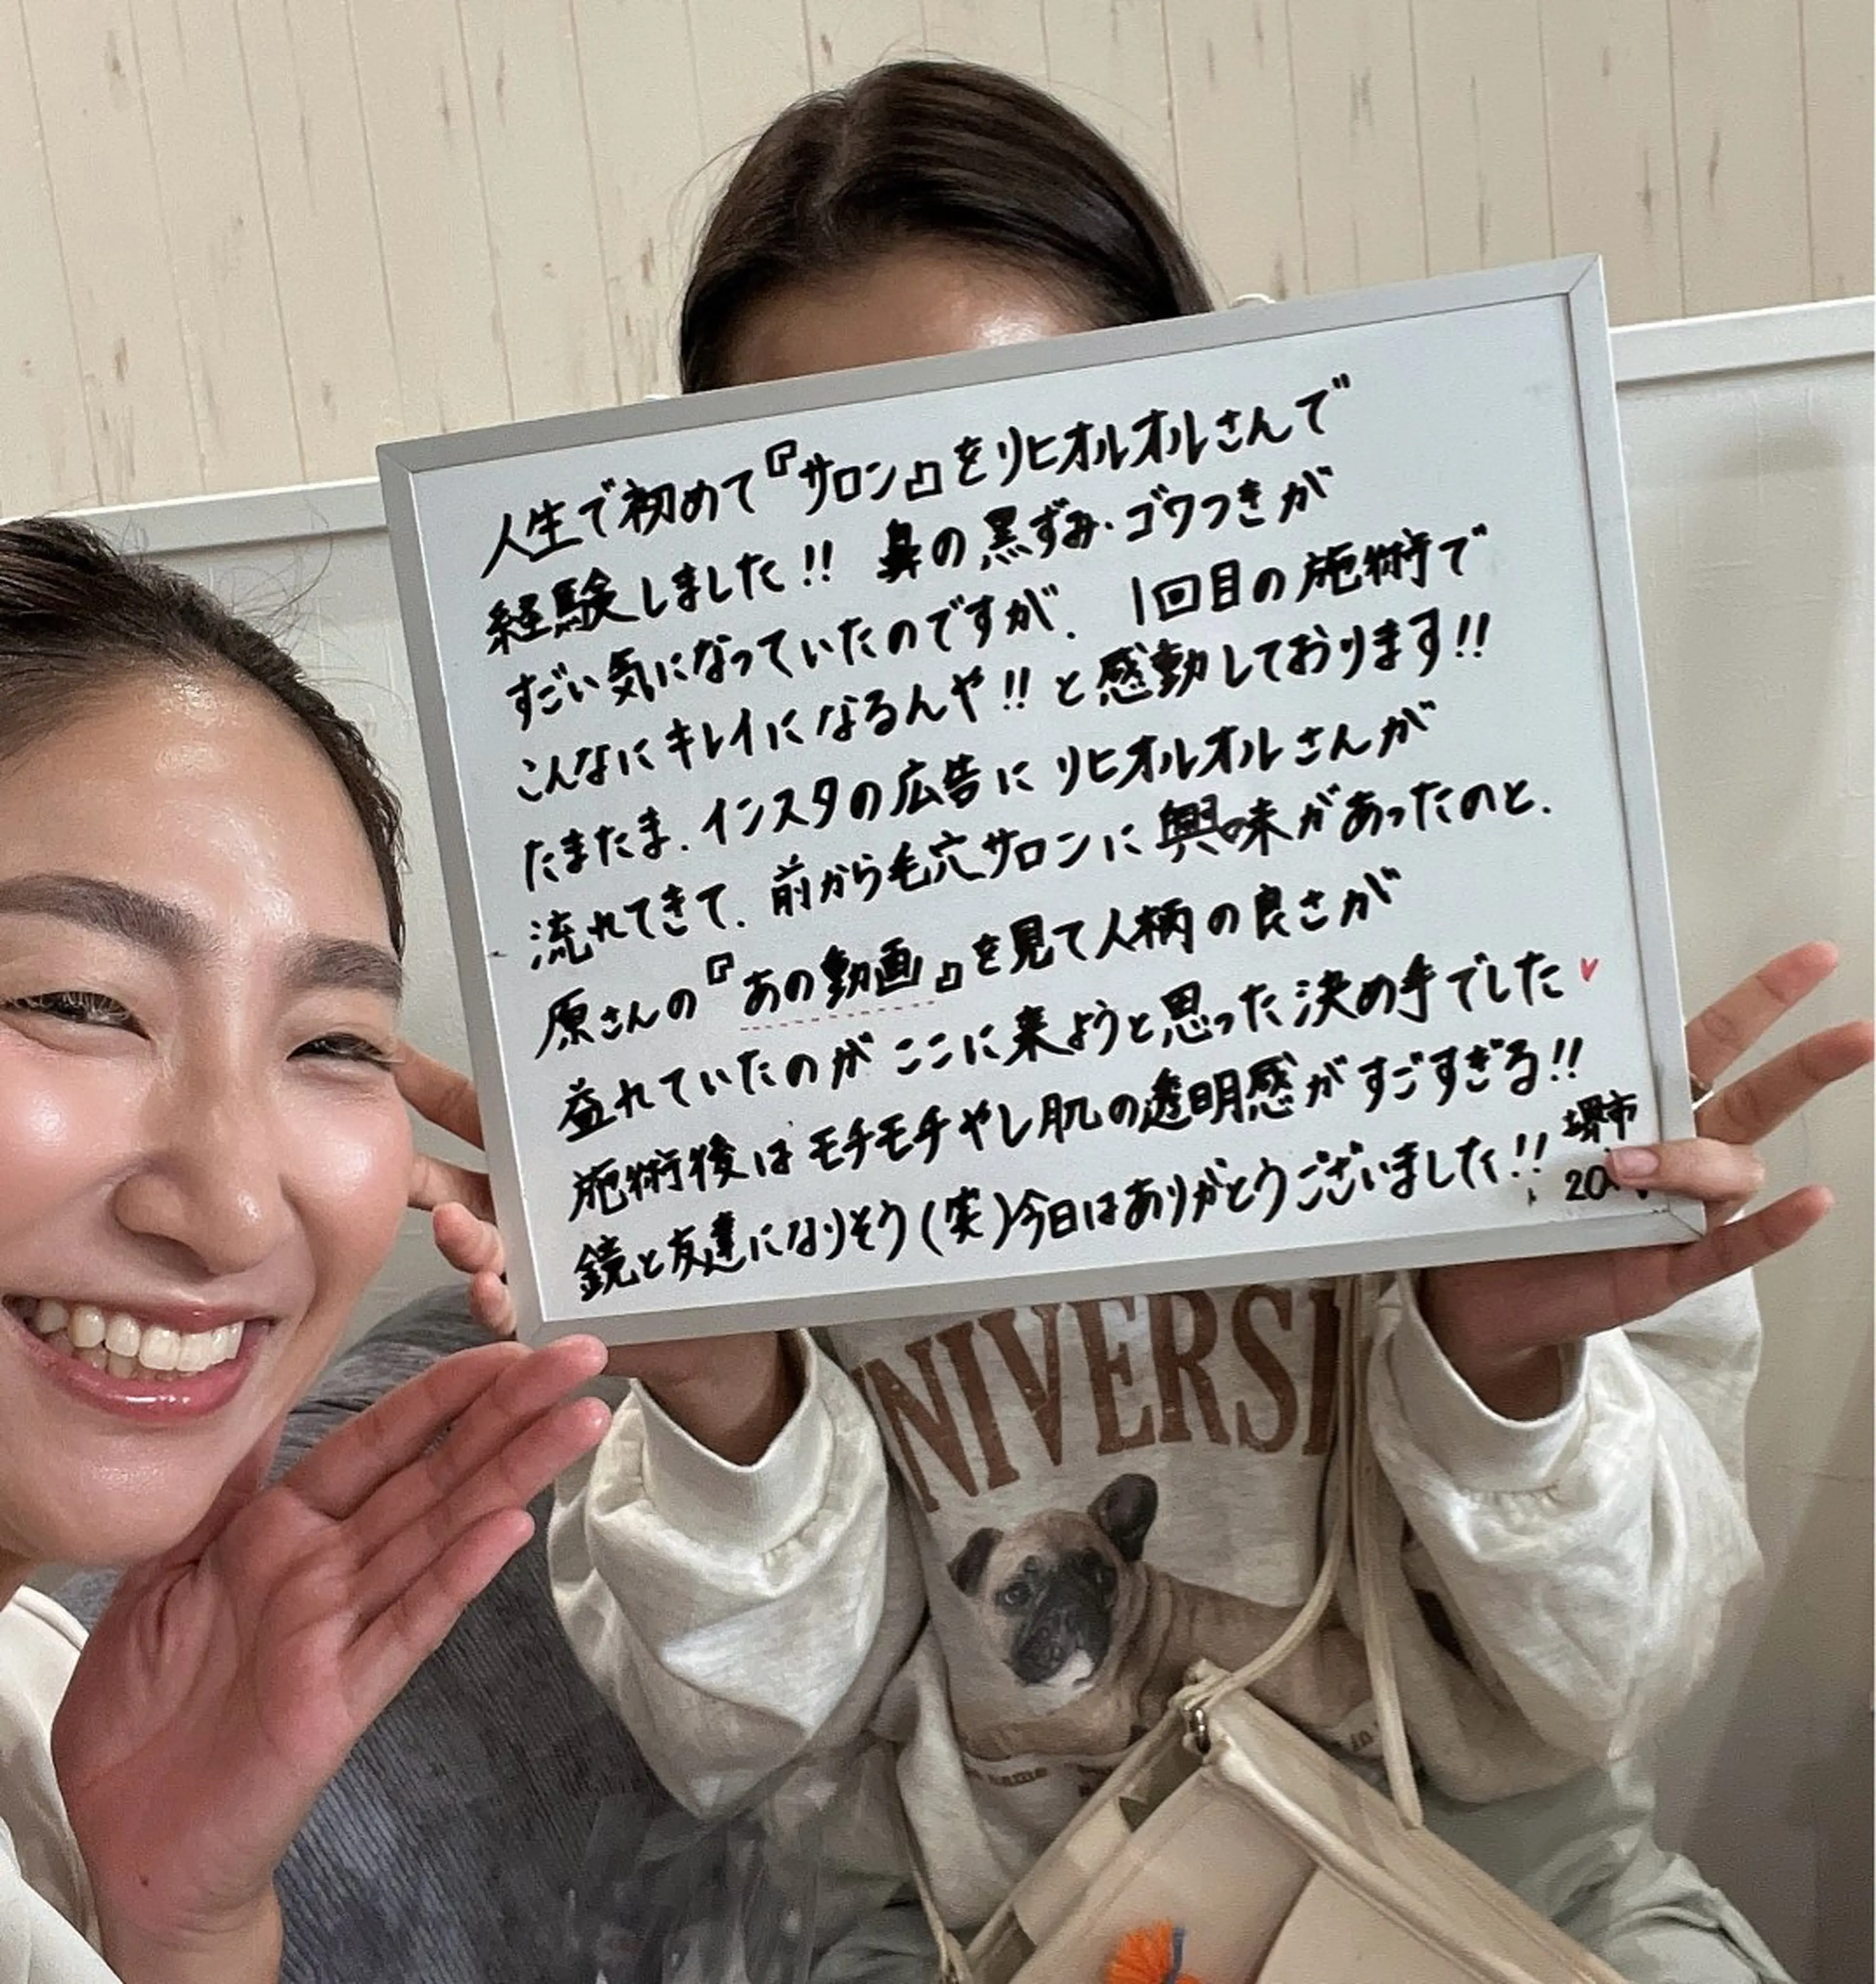 人生で初めて『サロン』をリヒオルオルさんで
経験しました!! 鼻の黒ずみ・ゴワつきが
すごい気になっていたのですが、1回目の施術で
こんなにキレイになるんや!!と感動しております!!
たまたま、インスタの広告にリヒオルオルさんが
流れてきて、前から毛穴サロンに興味があったのと、
原さんの『あの動画』を見て人柄の良さが
益れていたのがここに来ようと思った決め手でした♥
施術後はモチモチやし肌の透明感がすごすぎる!!
鏡と友達になりそう(笑)今日はありがとうございました!!
堺市
20
NIVERSI